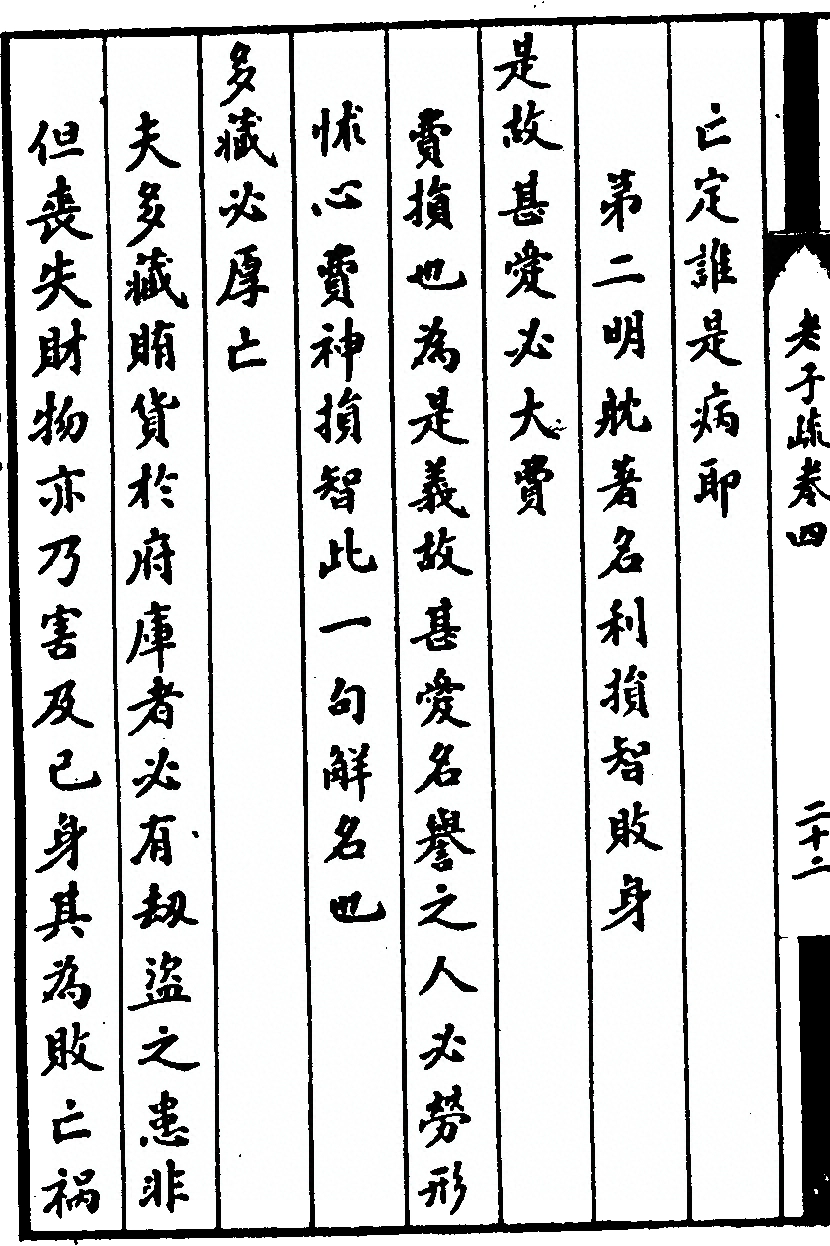 老子疏卷四
二十二
亡定誰是病耶
第二明躭著名利損智敗身
是故甚愛必大費
費損也為是義故甚愛名譽之人必勞形
怵心費神損智此一句解名也
多藏必厚亡
夫多藏賄貨於府庫者必有劫盜之患非
但喪失財物亦乃害及已身其為敗亡禍